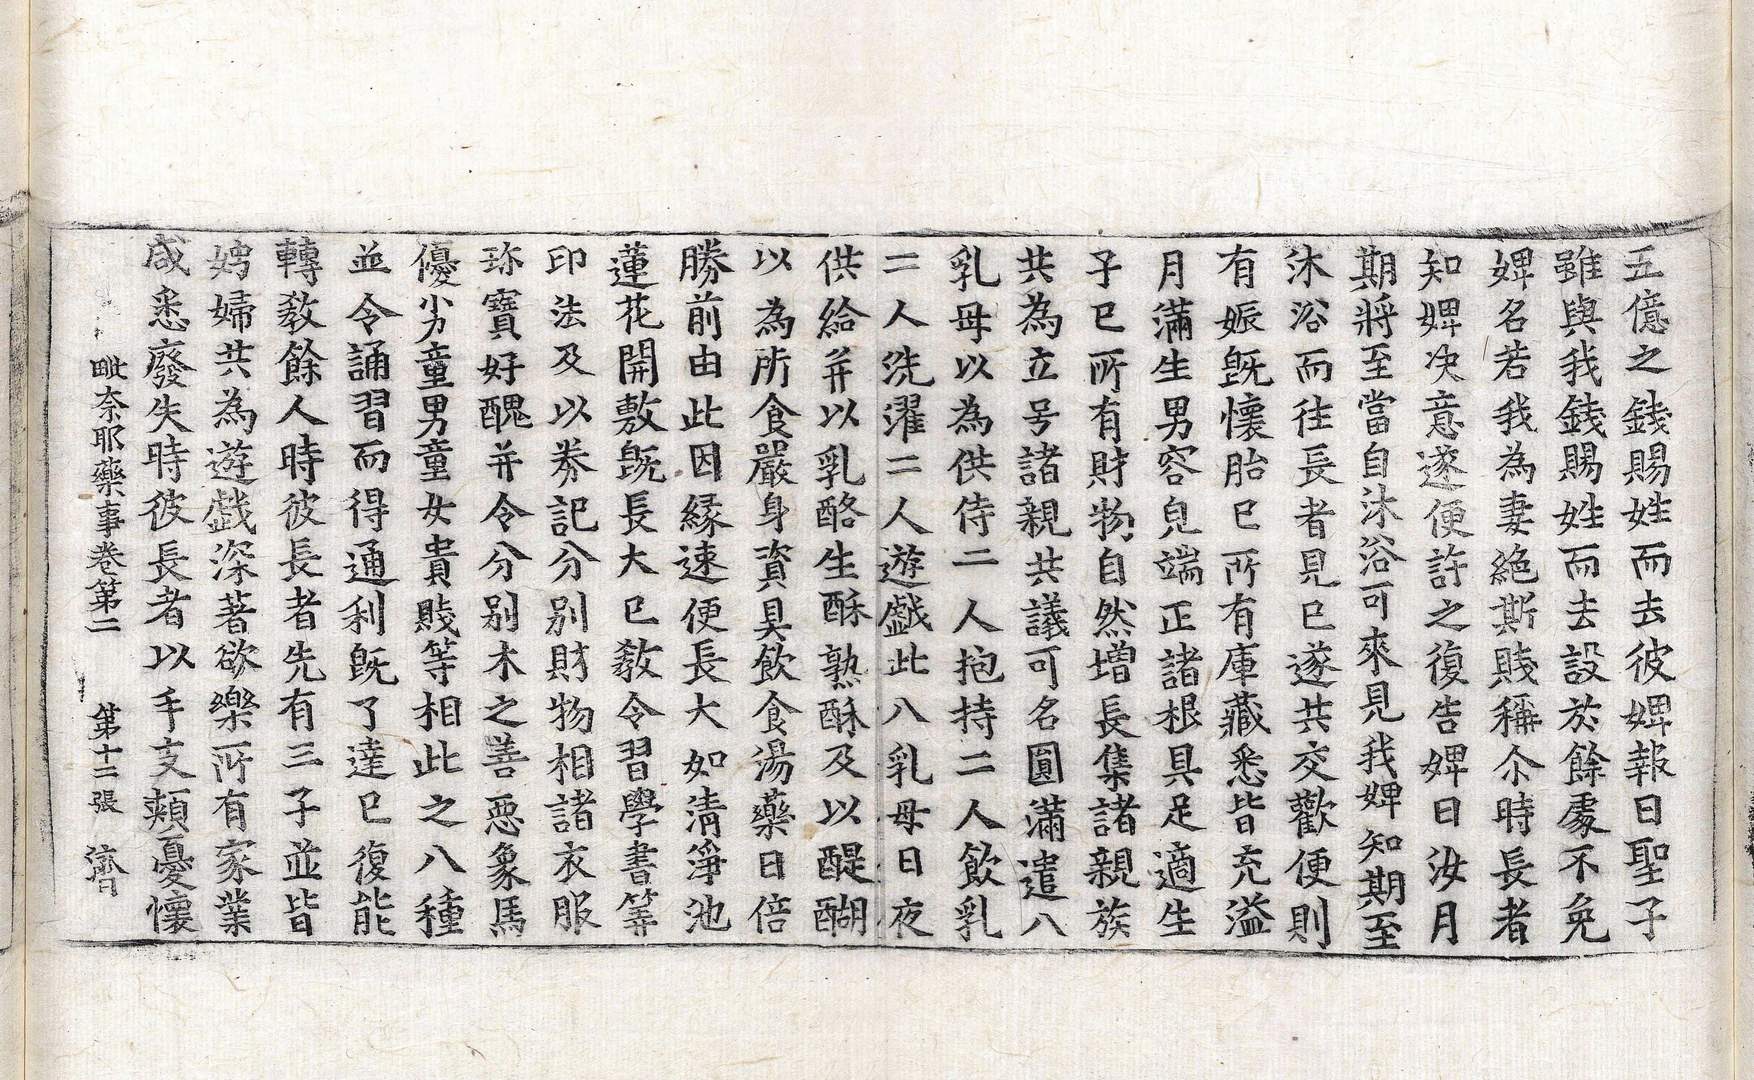 五億之錢賜姓而去彼婢報曰聖子
雖與我錢賜姓而去設於餘處不免
婢名若我為妻絕斯賤稱尒時長者
知婢决意遂便許之復告婢曰汝月
期將至當自沐浴可來見我婢知期至
沐浴而往長者見已遂共交歡便則
有娠旣懷胎已所有庫藏悉皆充溢
月滿生男容皃端正諸根具足適生
子已所有財物自然增長集諸親族
共為立号諸親共議可名圓滿遣八
乳母以為供侍二人抱持二人飲乳
二人洗濯二人遊戲此八乳母日夜
供給并以乳酪生酥熟酥及以醍醐
以為所食嚴身資具飲食湯藥日倍
勝前由此因緣速便長大如清淨池
蓮花開敷旣長大已教令習學書筭
印法及以券記分別財物相諸衣服
珎寶好醜并令分别木之善惡象馬
優劣童男童女貴賤等相此之八種
並令誦習而得通利旣了達已復能
轉教餘人時彼長者先有三子並皆
娉婦共為遊戲深著欲樂所有家業
咸悉廢失時彼長者以手支頰憂懷
毗奈耶藥事卷第二 第十二張 濟